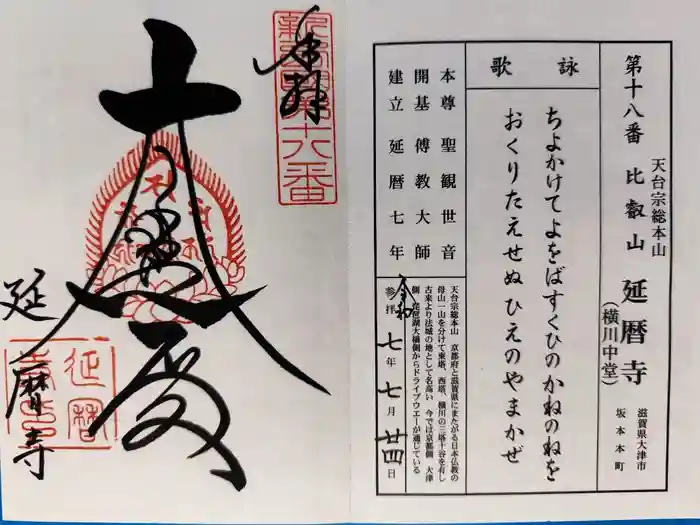 第十八番 比叡山 延暦寺
天台宗総本山
(横川中堂)
滋賀県大津市
坂本本町
詠歌
ちよかけてよをばすくひのかねのねを
おくりたえせぬひえのやまかぜ
本尊 聖観世音
開基 傅教大師
建立 延暦七年
天台宗総本山 京都府と滋賀県にまたがる日本仏教の
母山一山を分けて東塔、西塔、横川の三塔十谷を有し
古来より法城の地として名高い 今では京都側 大津
側 琵琶湖大橋側からドライブウエーが通じている
令和
参拝 七年 七月 廿四日
奉拝
第十八番
大悲殿
延暦寺
延暦